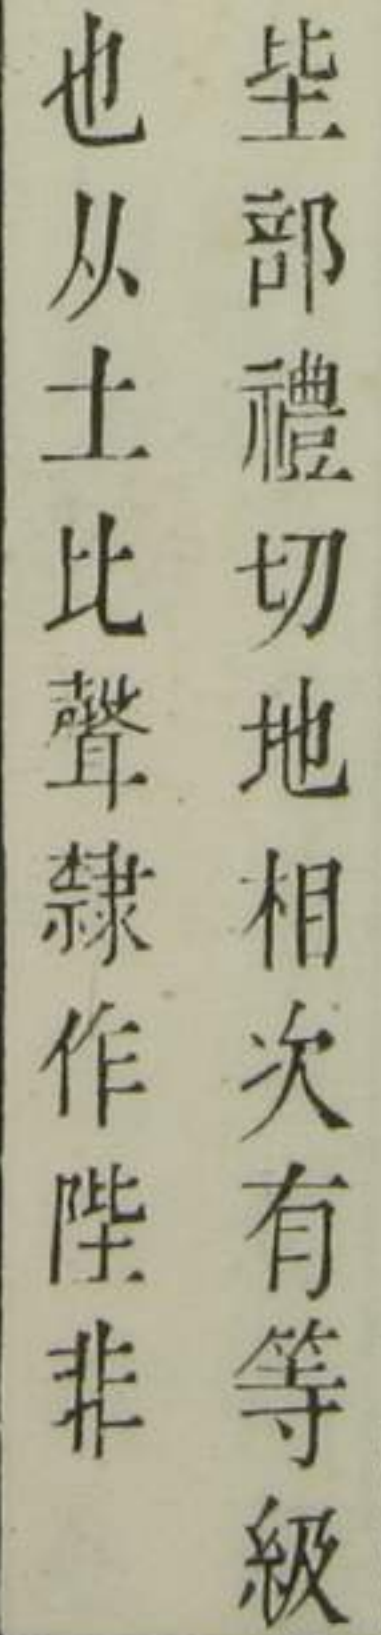 坒部禮切地相次有等級
也从土比聲隸作陛非